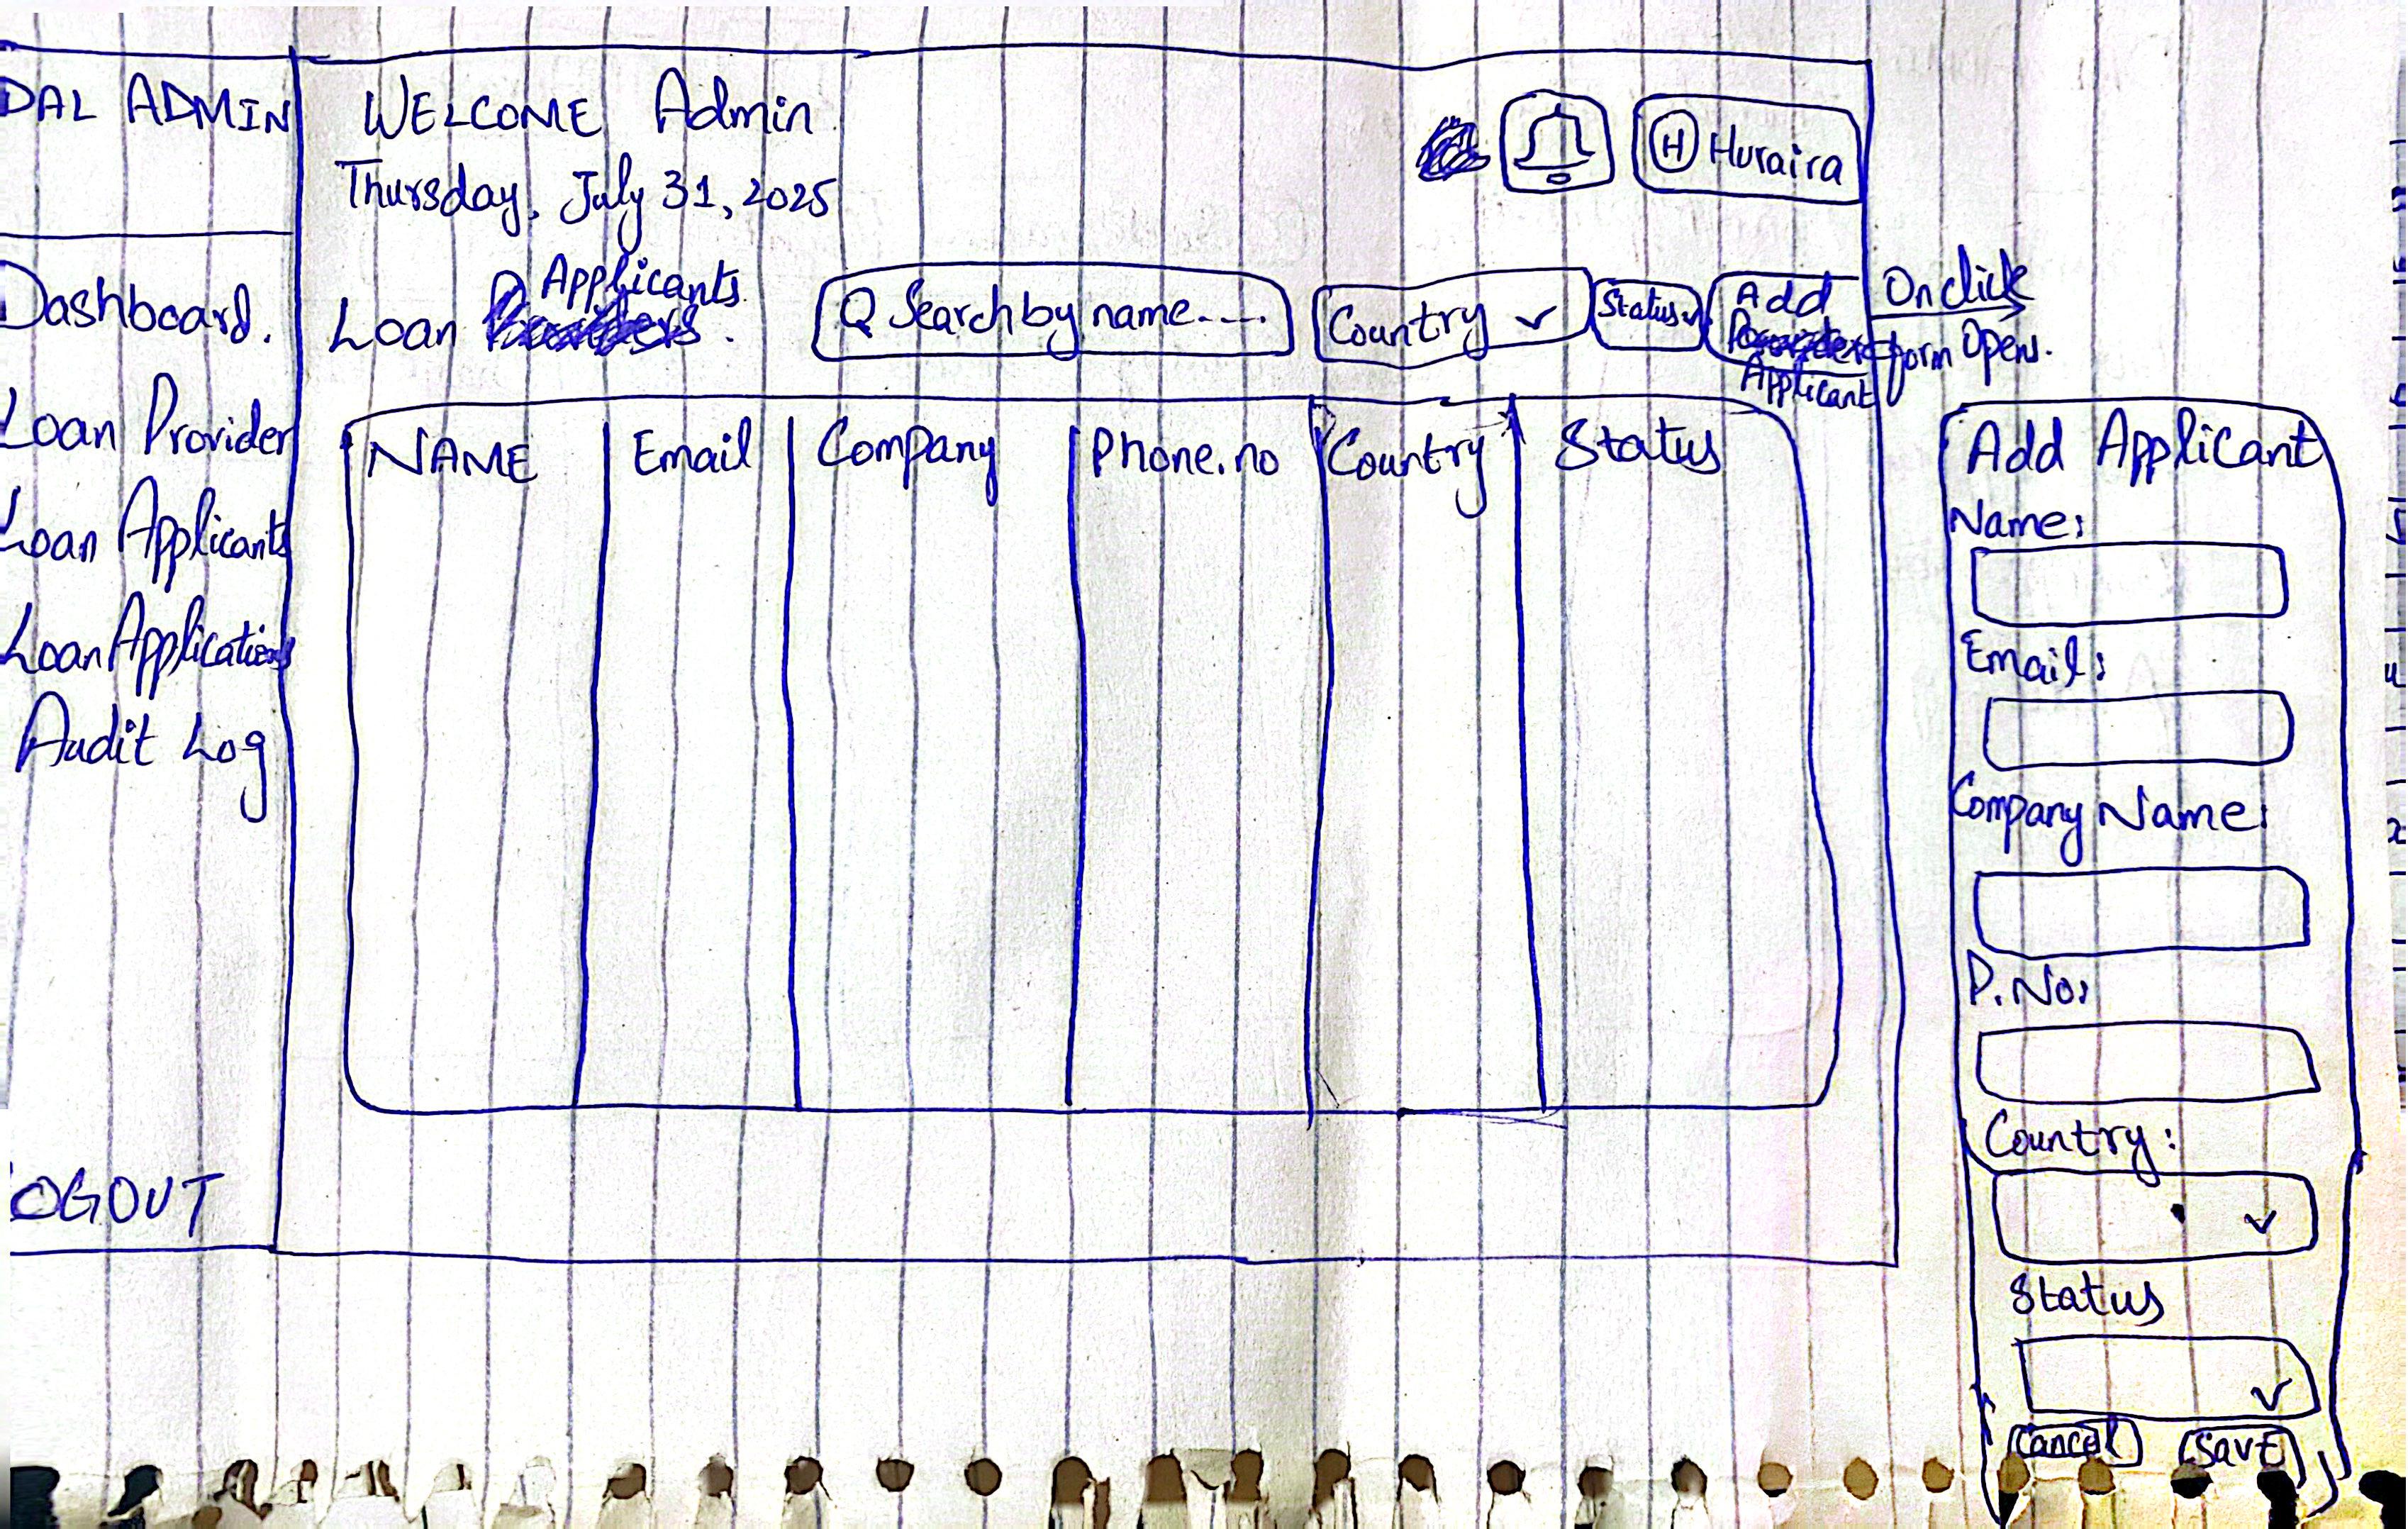 DAL ADMIN
Dashboard.
Loan Provider
Loan Applicants
Loan Applications
Audit Log
LOGOUT
WELCOME Admin
Thursday, July 31, 2025
H Huraira
Loan Applicants.
Search by name....
Country
Status
Add
Applicant
On click
form Open.
NAME
Email
Company
Phone.no
Country
Status
Add Applicant
Name:
Email:
Company Name:
P.No:
Country:
Status
Cancel
Save